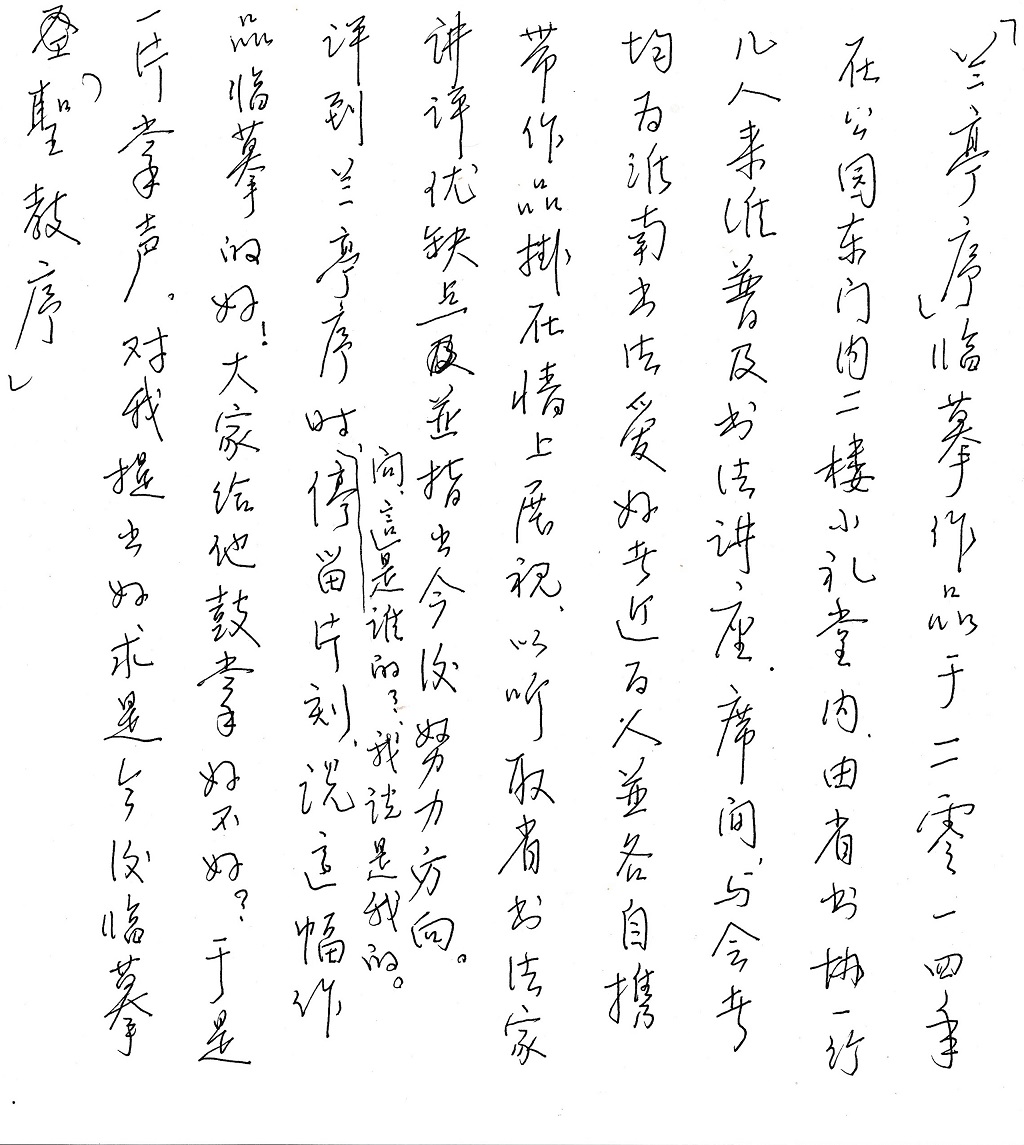 「兰亭序」临摹作品于二零一四年
在公园东门内二楼小礼堂内.由省书协一行
几人来淮普及书法讲座.席间,与会者
均为淮南书法爱好者近百人並各自携
带作品掛在墙上展视、以听取省书法家
讲评优缺点及並指出今后努力方向。
评到兰亭序时、停留片刻,说這幅作
问,這是谁的?我说是我的。
品临摹的好!大家给他鼓掌好不好?于是
一片掌声。对我提出好求是今后临摹
聖教序」